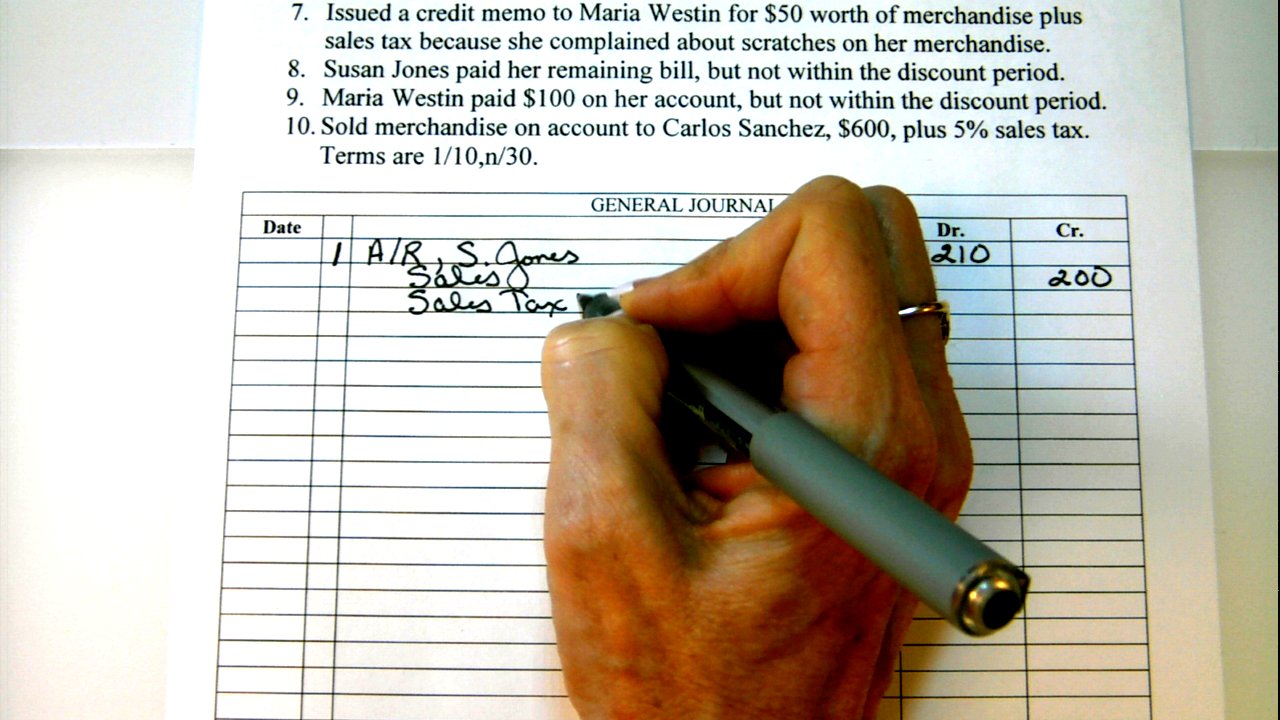 7. Issued a credit memo to Maria Westin for $50 worth of merchandise plus
sales tax because she complained about scratches on her merchandise.
8. Susan Jones paid her remaining bill, but not within the discount period.
9. Maria Westin paid $100 on her account, but not within the discount period.
10. Sold merchandise on account to Carlos Sanchez, $600, plus 5% sales tax.
Terms are 1/10,n/30.
GENERAL JOURNAL
Date Dr. Cr.
1 A/R, S. Jones 210
Sales 200
Sales Tax